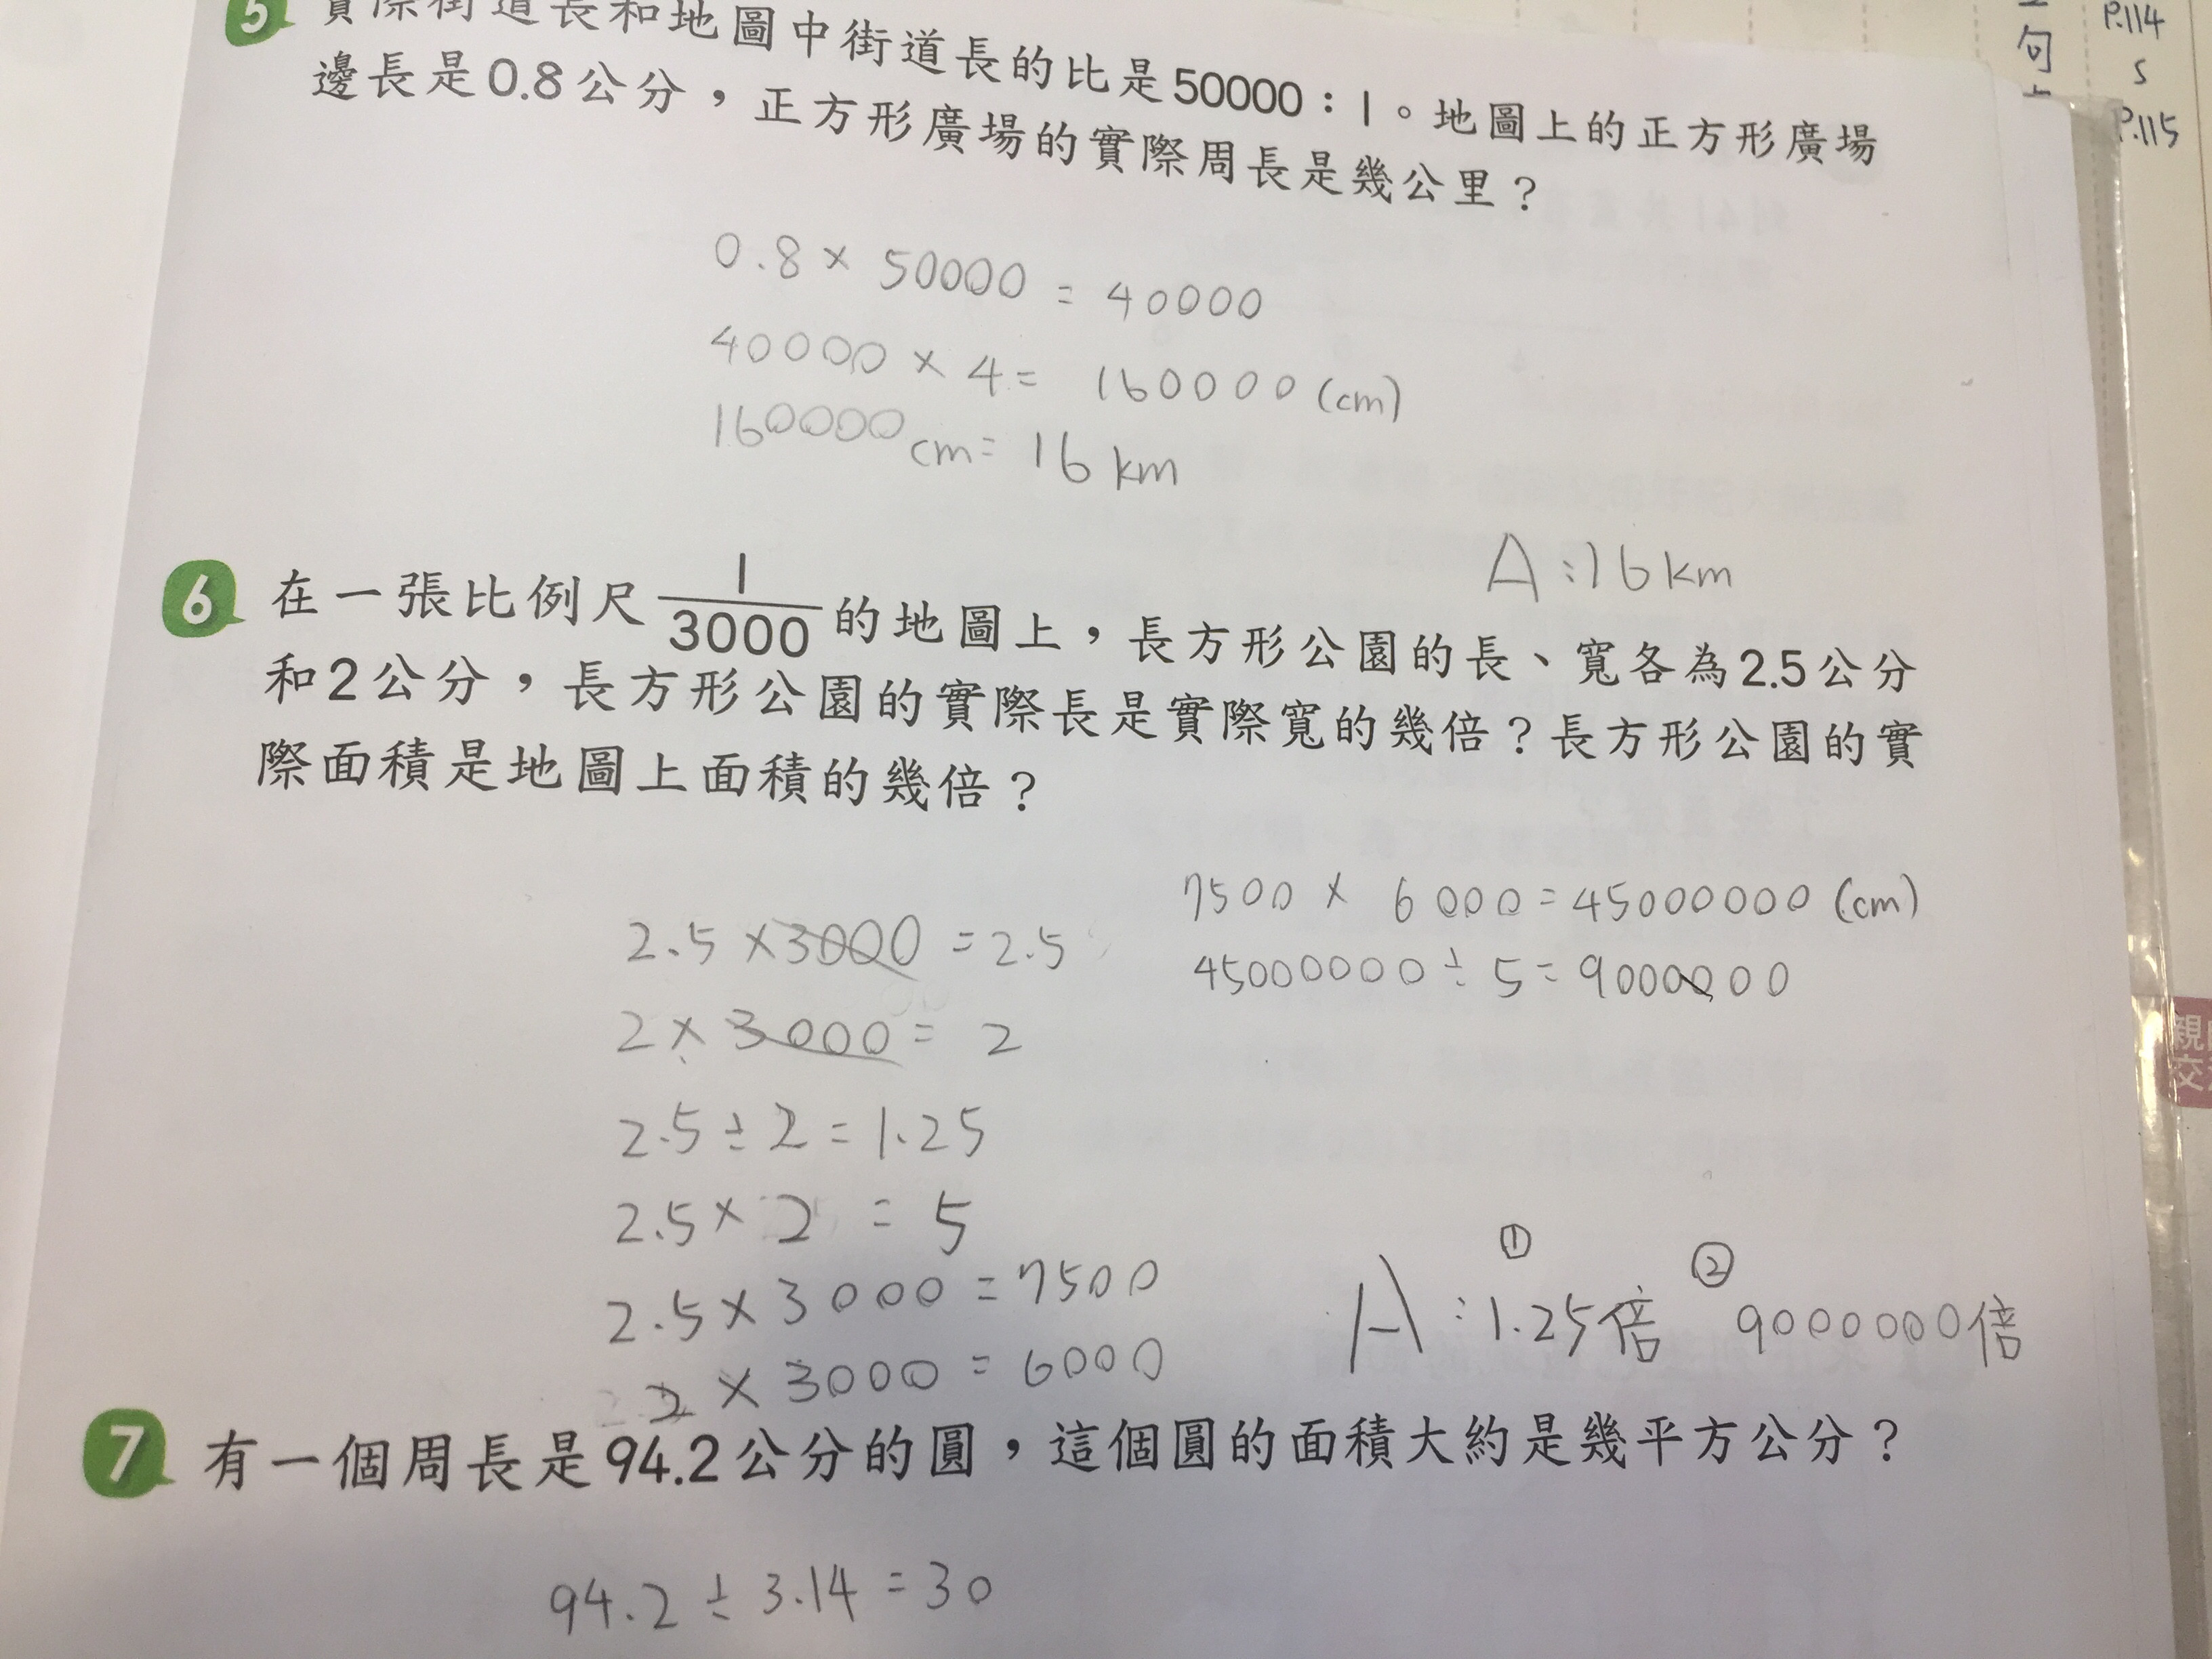 5 實際街道長和地圖中街道長的比是50000：1。地圖上的正方形廣場
邊長是0.8公分，正方形廣場的實際周長是幾公里？
0.8 × 50000 = 40000
40000 × 4 = 160000 (cm)
160000 cm = 16 km
A：16 km
6 在一張比例尺 1/3000 的地圖上，長方形公園的長、寬各為2.5公分
和2公分，長方形公園的實際長是實際寬的幾倍？長方形公園的實
際面積是地圖上面積的幾倍？
2.5 × 3000 = 2.5
2 × 3000 = 2
2.5 ÷ 2 = 1.25
2.5 × 2 = 5
2.5 × 3000 = 7500
2 × 3000 = 6000
7500 × 6000 = 45000000 (cm)
45000000 ÷ 5 = 9000000
A：①1.25倍 ②9000000倍
7 有一個周長是94.2公分的圓，這個圓的面積大約是幾平方公分？
94.2 ÷ 3.14 = 30
句
P.114
P.115
親
交